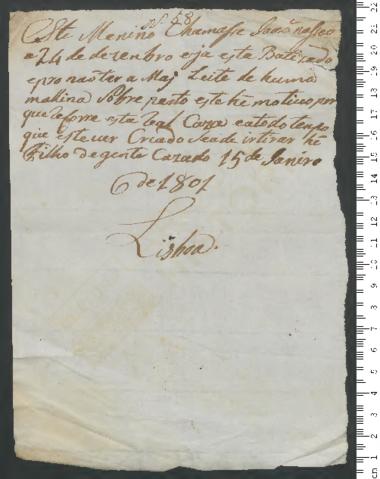 nº 48
Este Menino Chamasse Juaõ nasseo
a 24 de dezenbro eja esta Batizado
e por nao ter a Maj Leite de huma
mallina sobre parto este he motivo por
que co forre esta Real Caza e a todo tenpo
que estever Criado Seade irtirar he
Filho de gente Cazado 15 de Janiro
de 1801
Lisboa.